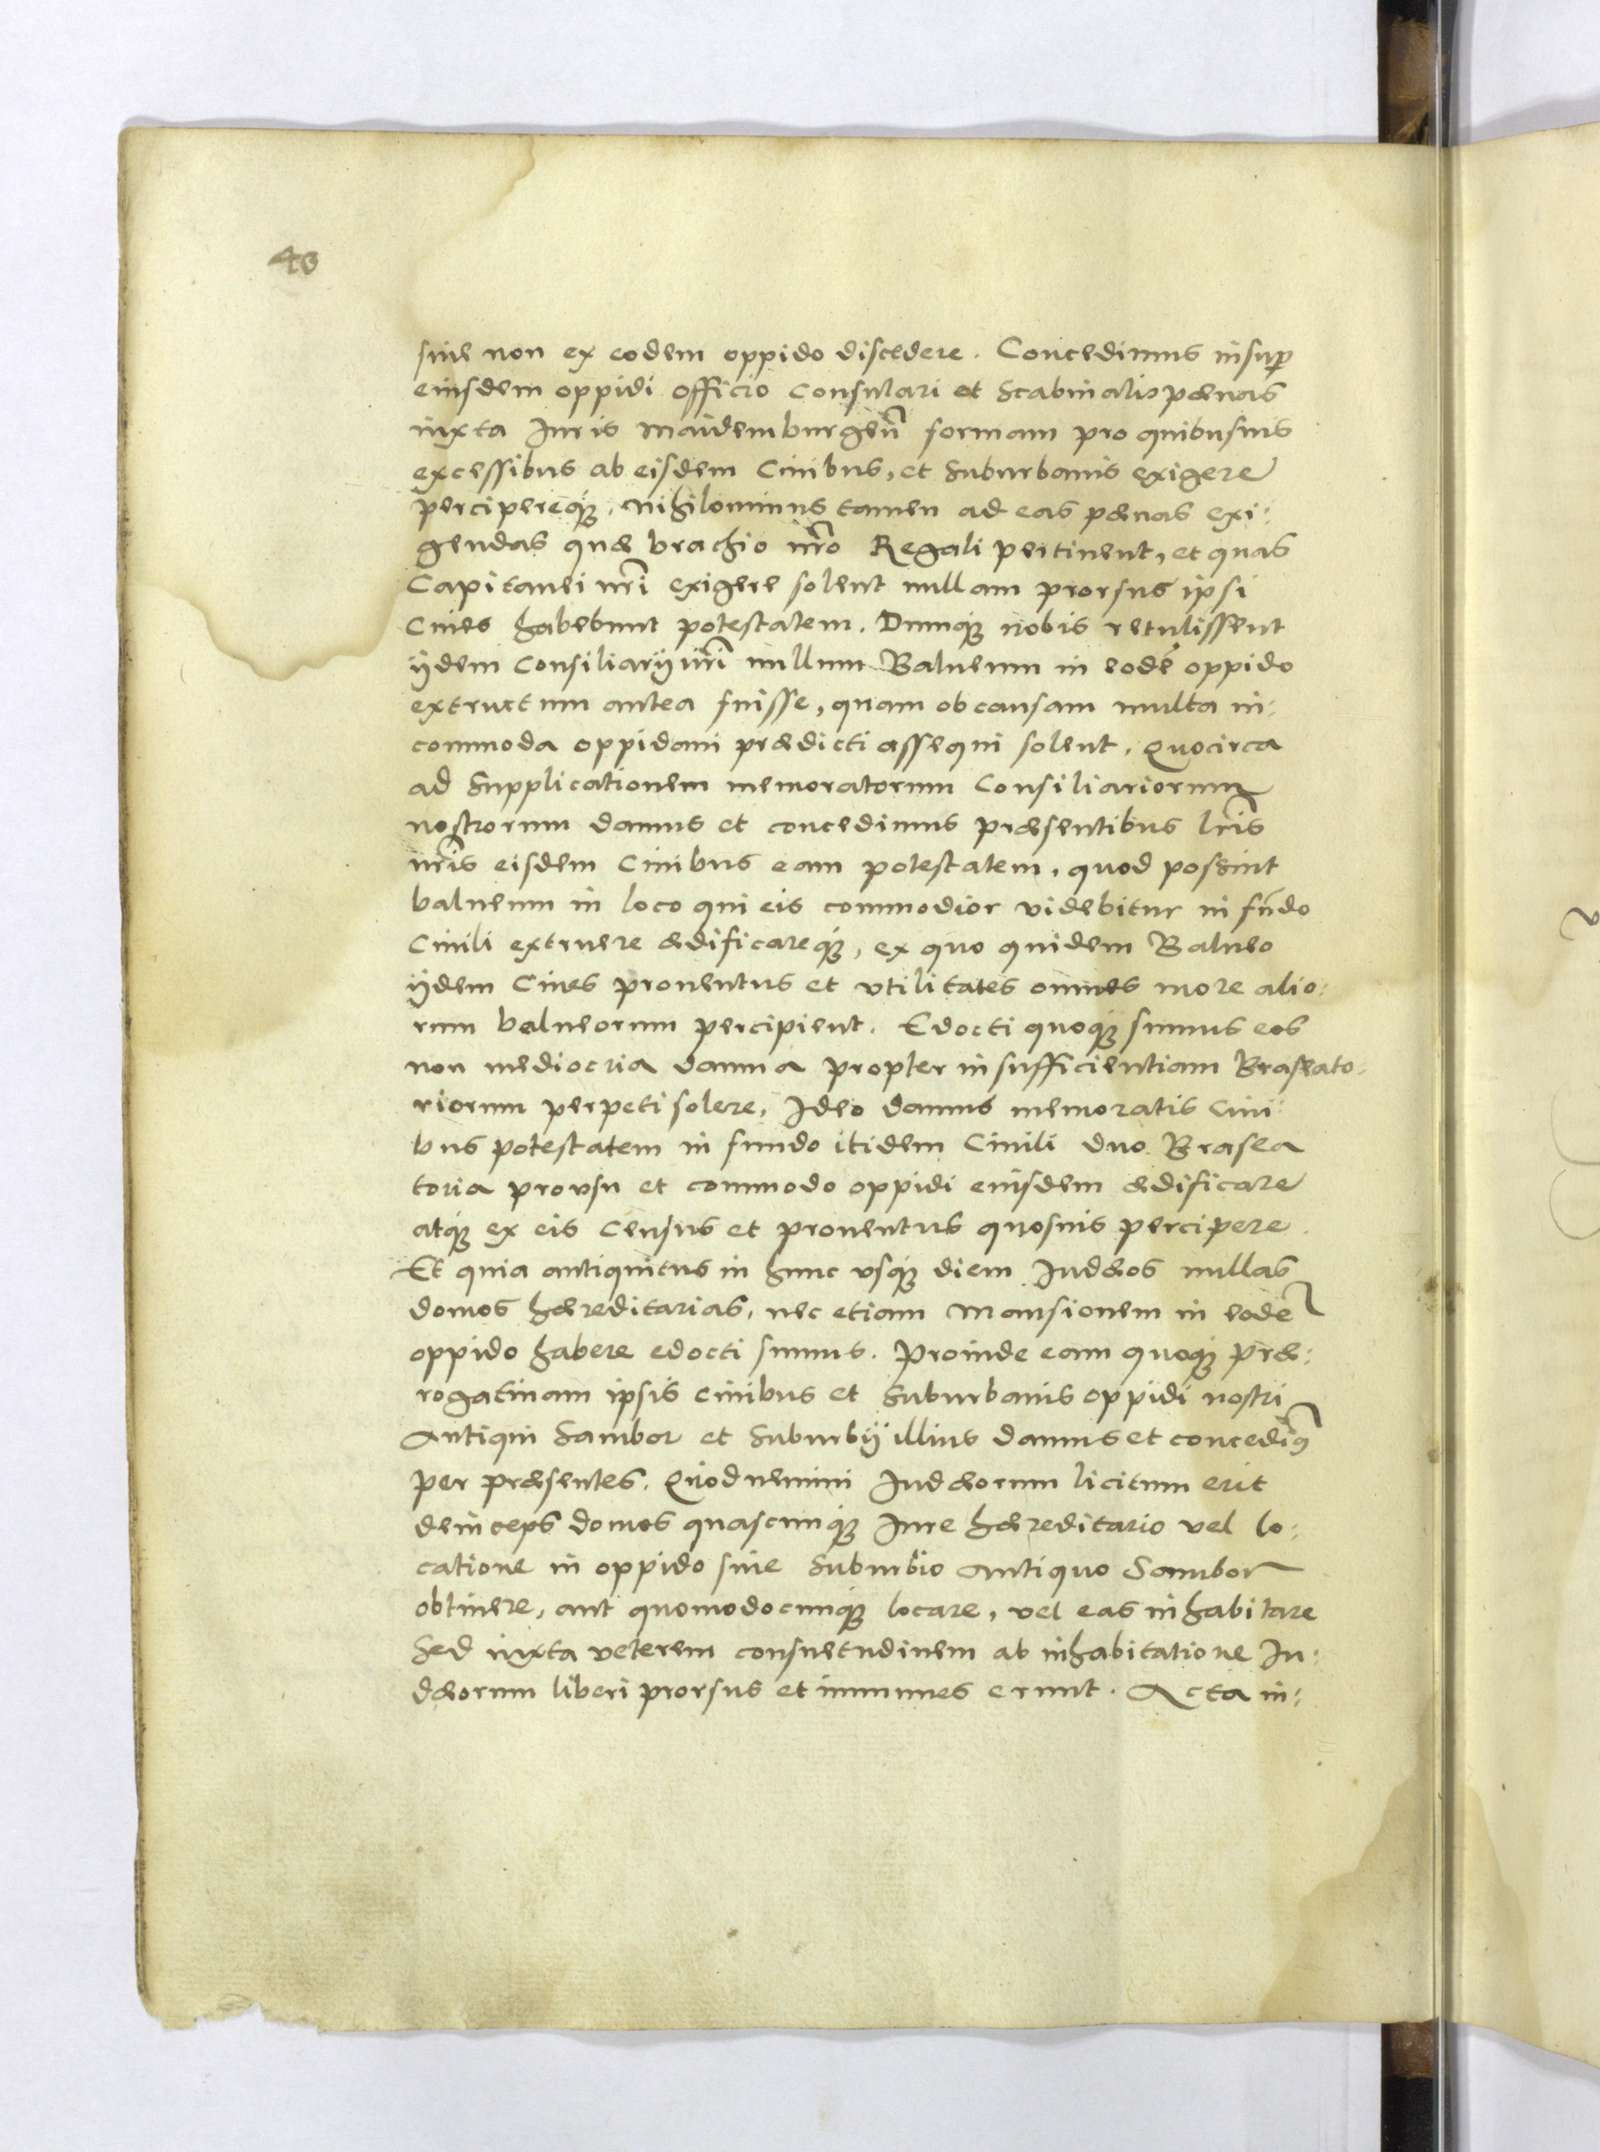 40
siue non ex eodem oppido discedere. Concedimus insup
eiusdem oppidi officio Consulari et Scabinalis pænas
iuxta Iuris Maidemburgen̄ formam pro quibusuis
excessibus ab eisdem Ciuibus, et Suburbanis exigere
percipereq;, nihilominus tamen ad eas pænas exi:
gendas quæ brachio nr̄o Regali pertinent, et quas
Capitanei nr̄i exigere solent nullam prorsus ipsi
Ciues habebunt potestatem. Dumq; nobis retulissent
ijdem Consiliarij nr̄i nullum Balneum in eodē oppido
extructum antea fuisse, quam ob causam multa in:
commoda oppidani prædicti assequi solent. Quocirca
ad Supplicationem memoratorum Consiliariorum
nostrorum damus et concedimus præsentibus lr̄is
nr̄is eisdem Ciuibus eam potestatem, quod possint
balneum in loco qui eis commodior videbitur in fūdo
Ciuili extruere ædificareq;, ex quo quidem Balneo
ijdem Ciues prouentus et vtilitates omnes more alio:
rum balneorum percipient. Edocti quoq; sumus eos
non mediocria damna propter insufficientiam Braseato:
riorum perpeti solere, Ideo damus memoratis Ciui:
bus potestatem in fundo itidem Ciuili duo Brasea
toria pro vsu et commodo oppidi eiusdem ædificare
atq; ex eis Census et prouentus quosuis percipere.
Et quia antiquitus in hunc vsq; diem Iudæos nullas
domos hæreditarias, nec etiam Mansionem in eodē
oppido habere edocti sumus. Proinde eam quoq; præ:
rogatiuam ipsis ciuibus et Suburbanis oppidi nostri
Antiqui Sambor et Suburbij illius damus et concedim9
per præsentes. Quod nemini Iudæorum licitum erit
deinceps domos quascunq; Iure hæreditario vel lo:
catione in oppido siue Suburbio Antiquo Sambor
obtinere, aut quomodocunq; locare, vel eas inhabitare
Sed iuxta veterem consuetudinem ab inhabitatione Iu:
dæorum liberi prorsus et immunes erunt. Acta in: